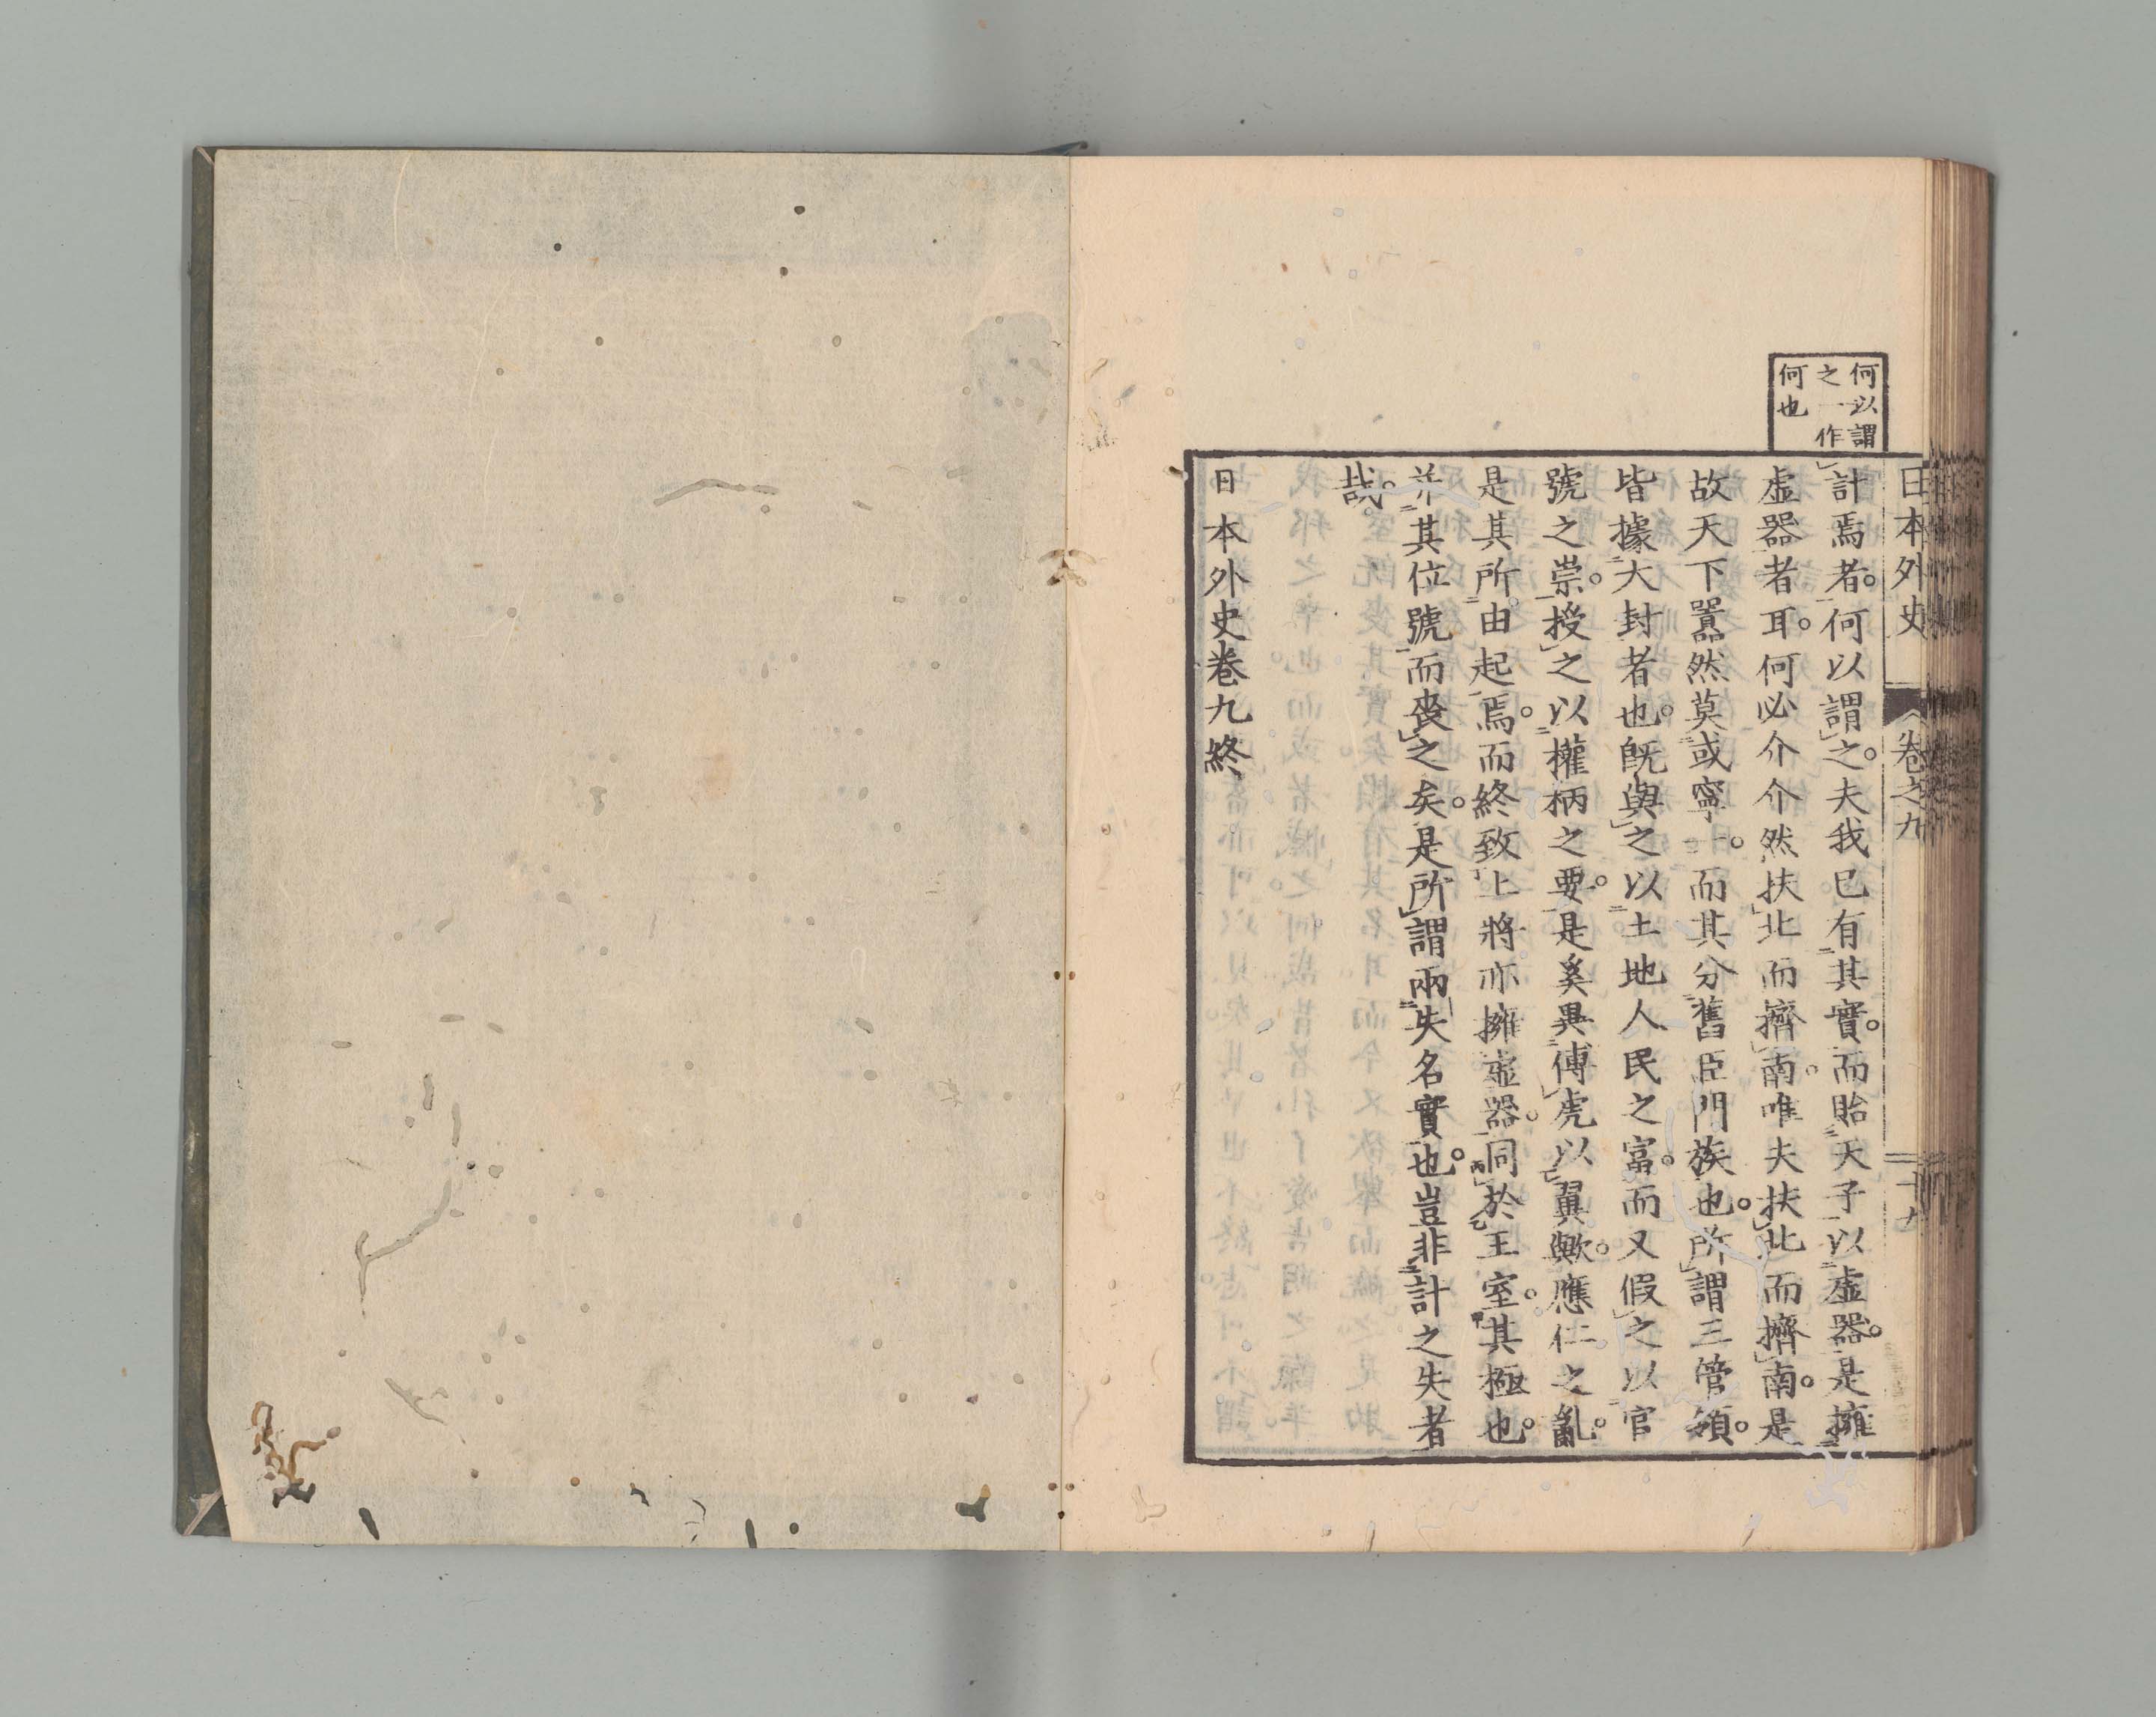 何以謂
之一作
何也
日本外史　卷之九
計焉者。何以謂之。夫我已有其實。而貽天子以虛器。是擁
虛器者耳。何必介介然扶北而擠南。唯夫扶北而擠南。是
故天下囂然莫或寧一。而其分舊臣門族也。所謂三管領。
皆據大封者也。既與之以土地人民之富。而又假之以官
號之崇。授之以權柄之要。是奚異傅虎以翼歟。應仁之亂。
是其所由起焉。而終致上將亦擁虛器。同於王室。其極也。
并其位號而喪之矣。是所謂兩失名實也。豈非計之失者
哉。
日本外史卷九終